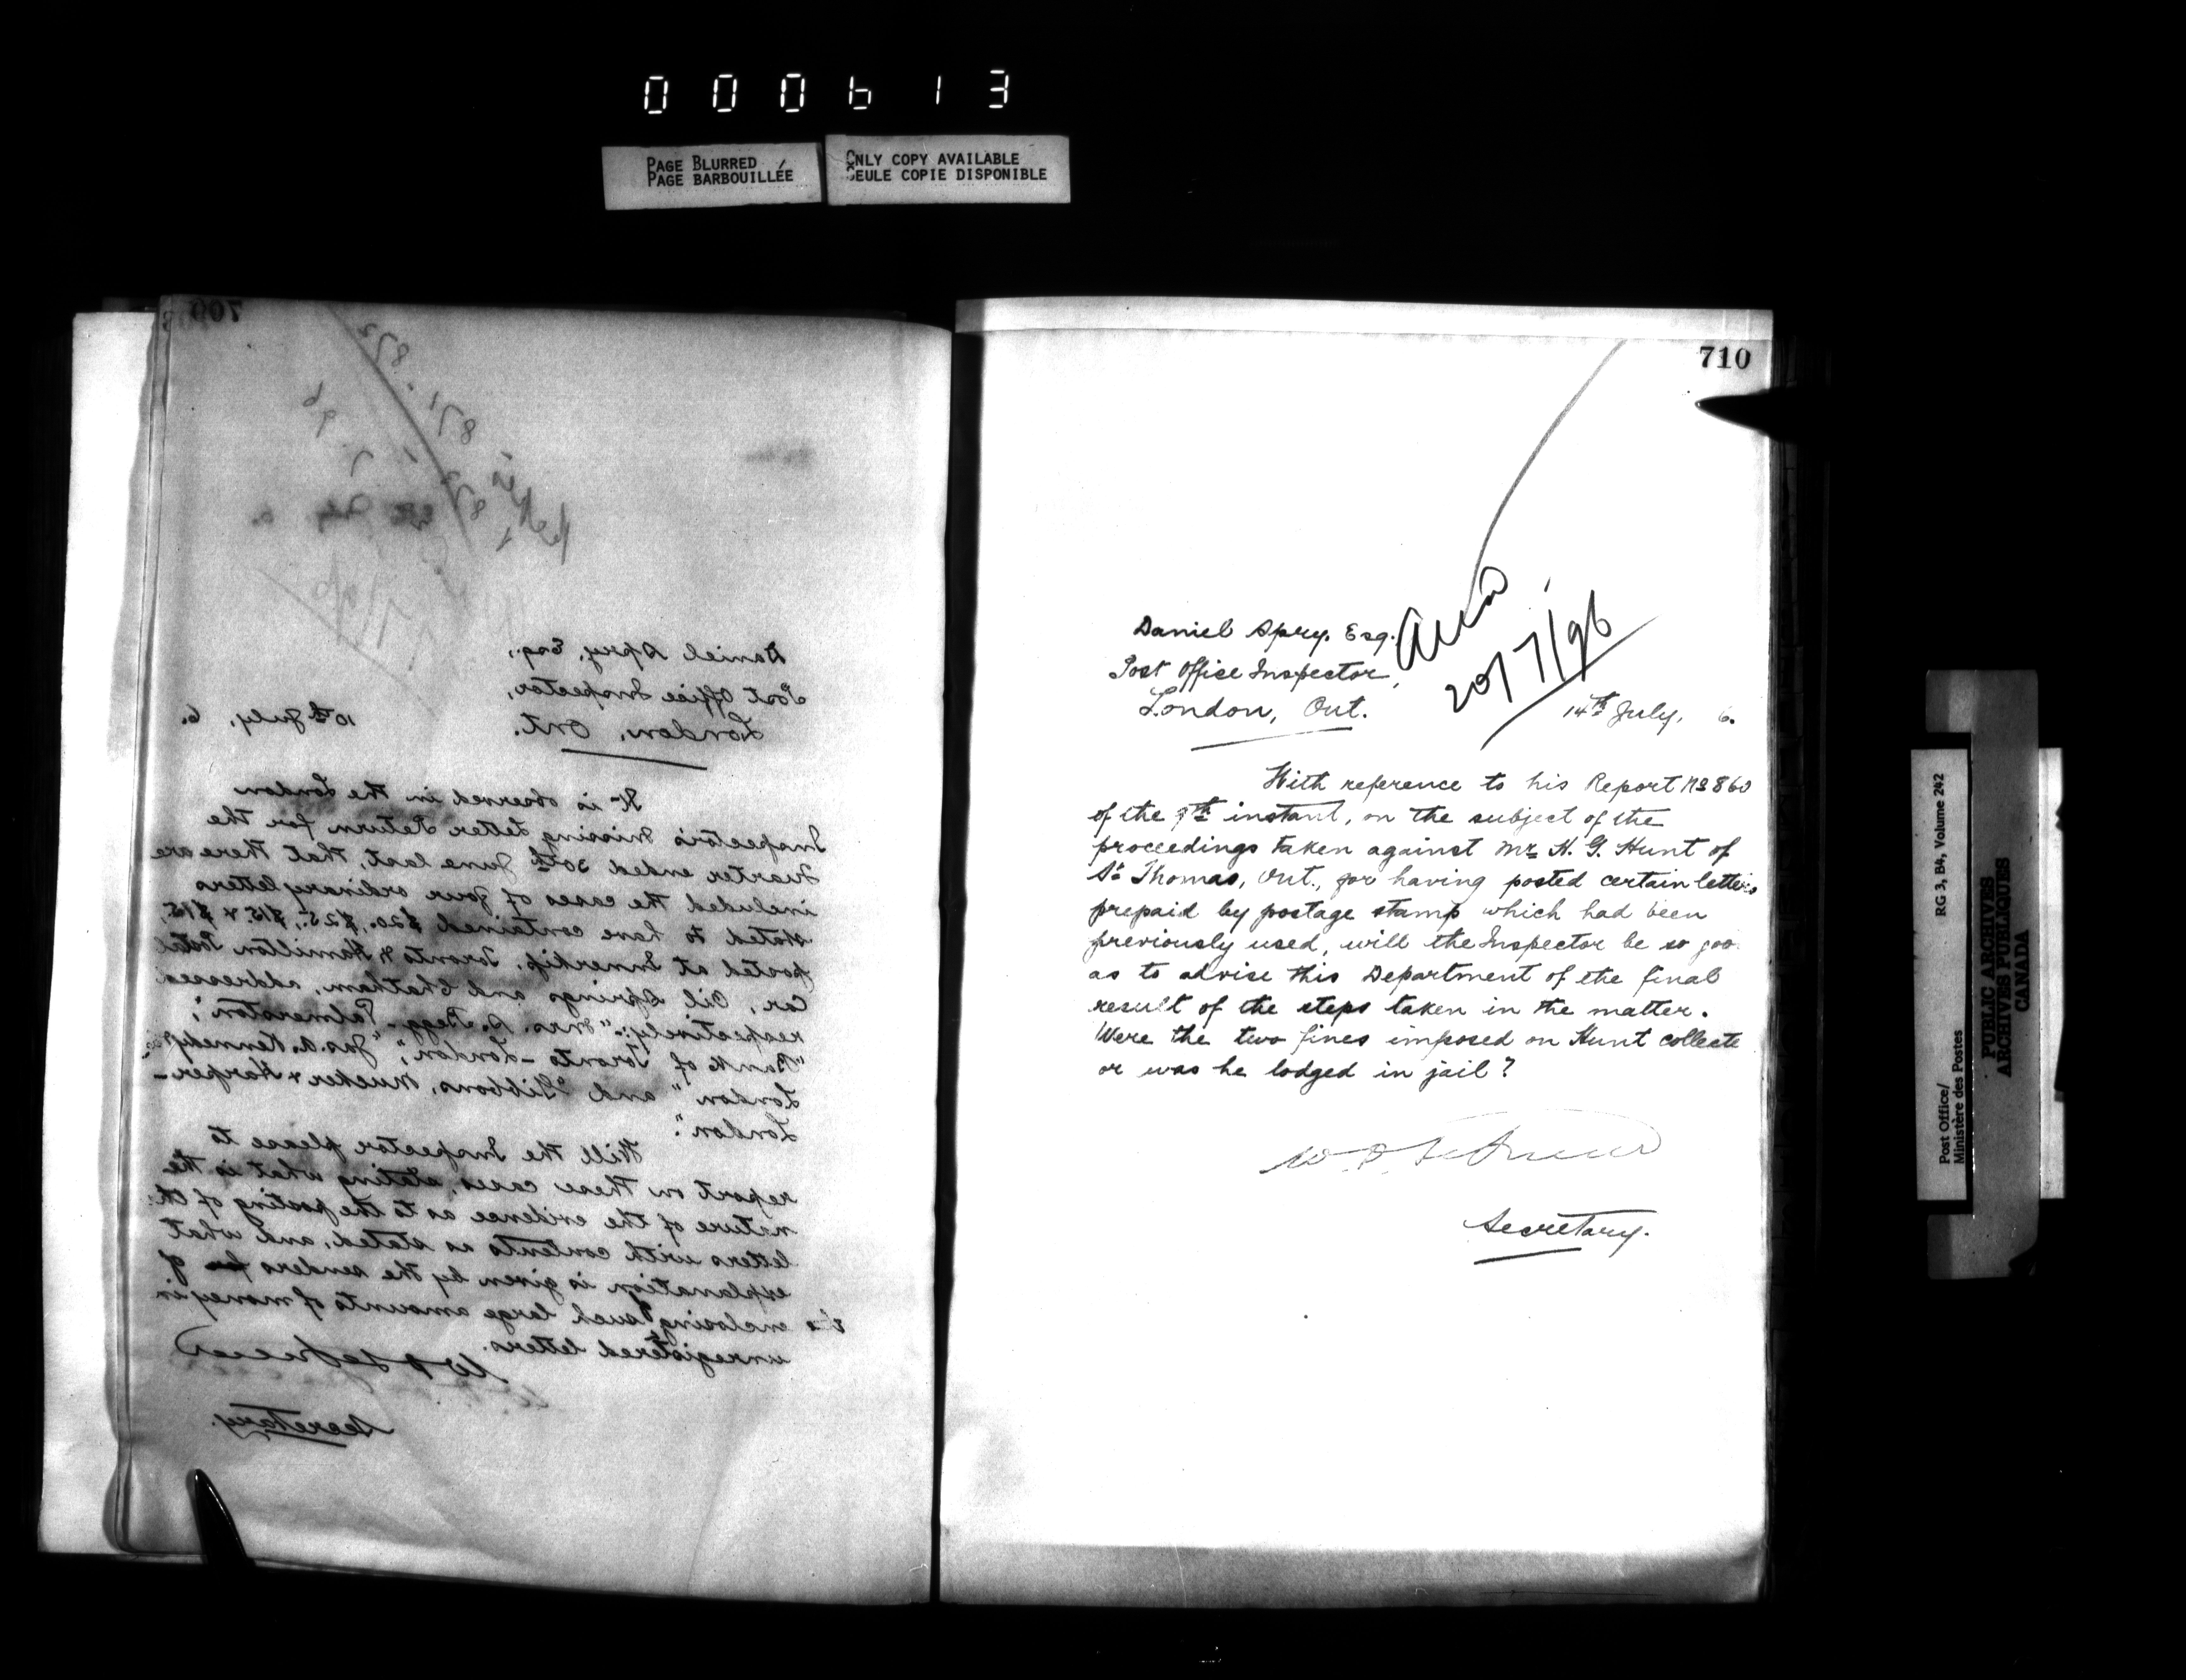 000613
PAGE BLURRED
PAGE BARBOUILLÉE
ONLY COPY AVAILABLE
SEULE COPIE DISPONIBLE
709
872
871
873
Daniel Spry, Esq.,
Post Office Inspector,
London, Ont.
10th July, 6.
It is observed in the London
Inspector's Missing Letter Return for the
Quarter ended 30th June last, that there are
included the cases of four ordinary letters
stated to have contained $20. $25., $15. &
posted at Innerkip, Toronto & Hamilton Postal
Car, Oil Springs and Chatham, addressed
respectively:- "Mrs. A. Begg - Palmerston",
"Bank of Toronto - London", "Jas A. Kennedy
London" and "Gibbons, & Harper -
London".
Will the Inspector please to
report on these cases, stating what is the
nature of the evidence as to the posting of the
letters with contents as stated, and, what
explanation is given by the senders of
enclosing such large amounts of money in
unregistered letters.
Secretary.
710
20/7/96
Daniel Spry. Esq.
Post Office Inspector,
London, Ont.
14th July, 6.
With reference to his Report No 860
of the 9th instant, on the subject of the
proceedings taken against Mr H. G. Hunt of
St Thomas, Ont., for having posted certain letters
prepaid by postage stamp which had been
previously used, will the Inspector be so goo
as to advise this Department of the final
result of the steps taken in the matter.
Were the two fines imposed on Hunt collecte
or was he lodged in jail?
Secretary.
Post Office/
Ministère des Postes
RG 3, B4, Volume 242
PUBLIC ARCHIVES
ARCHIVES PUBLIQUES
CANADA